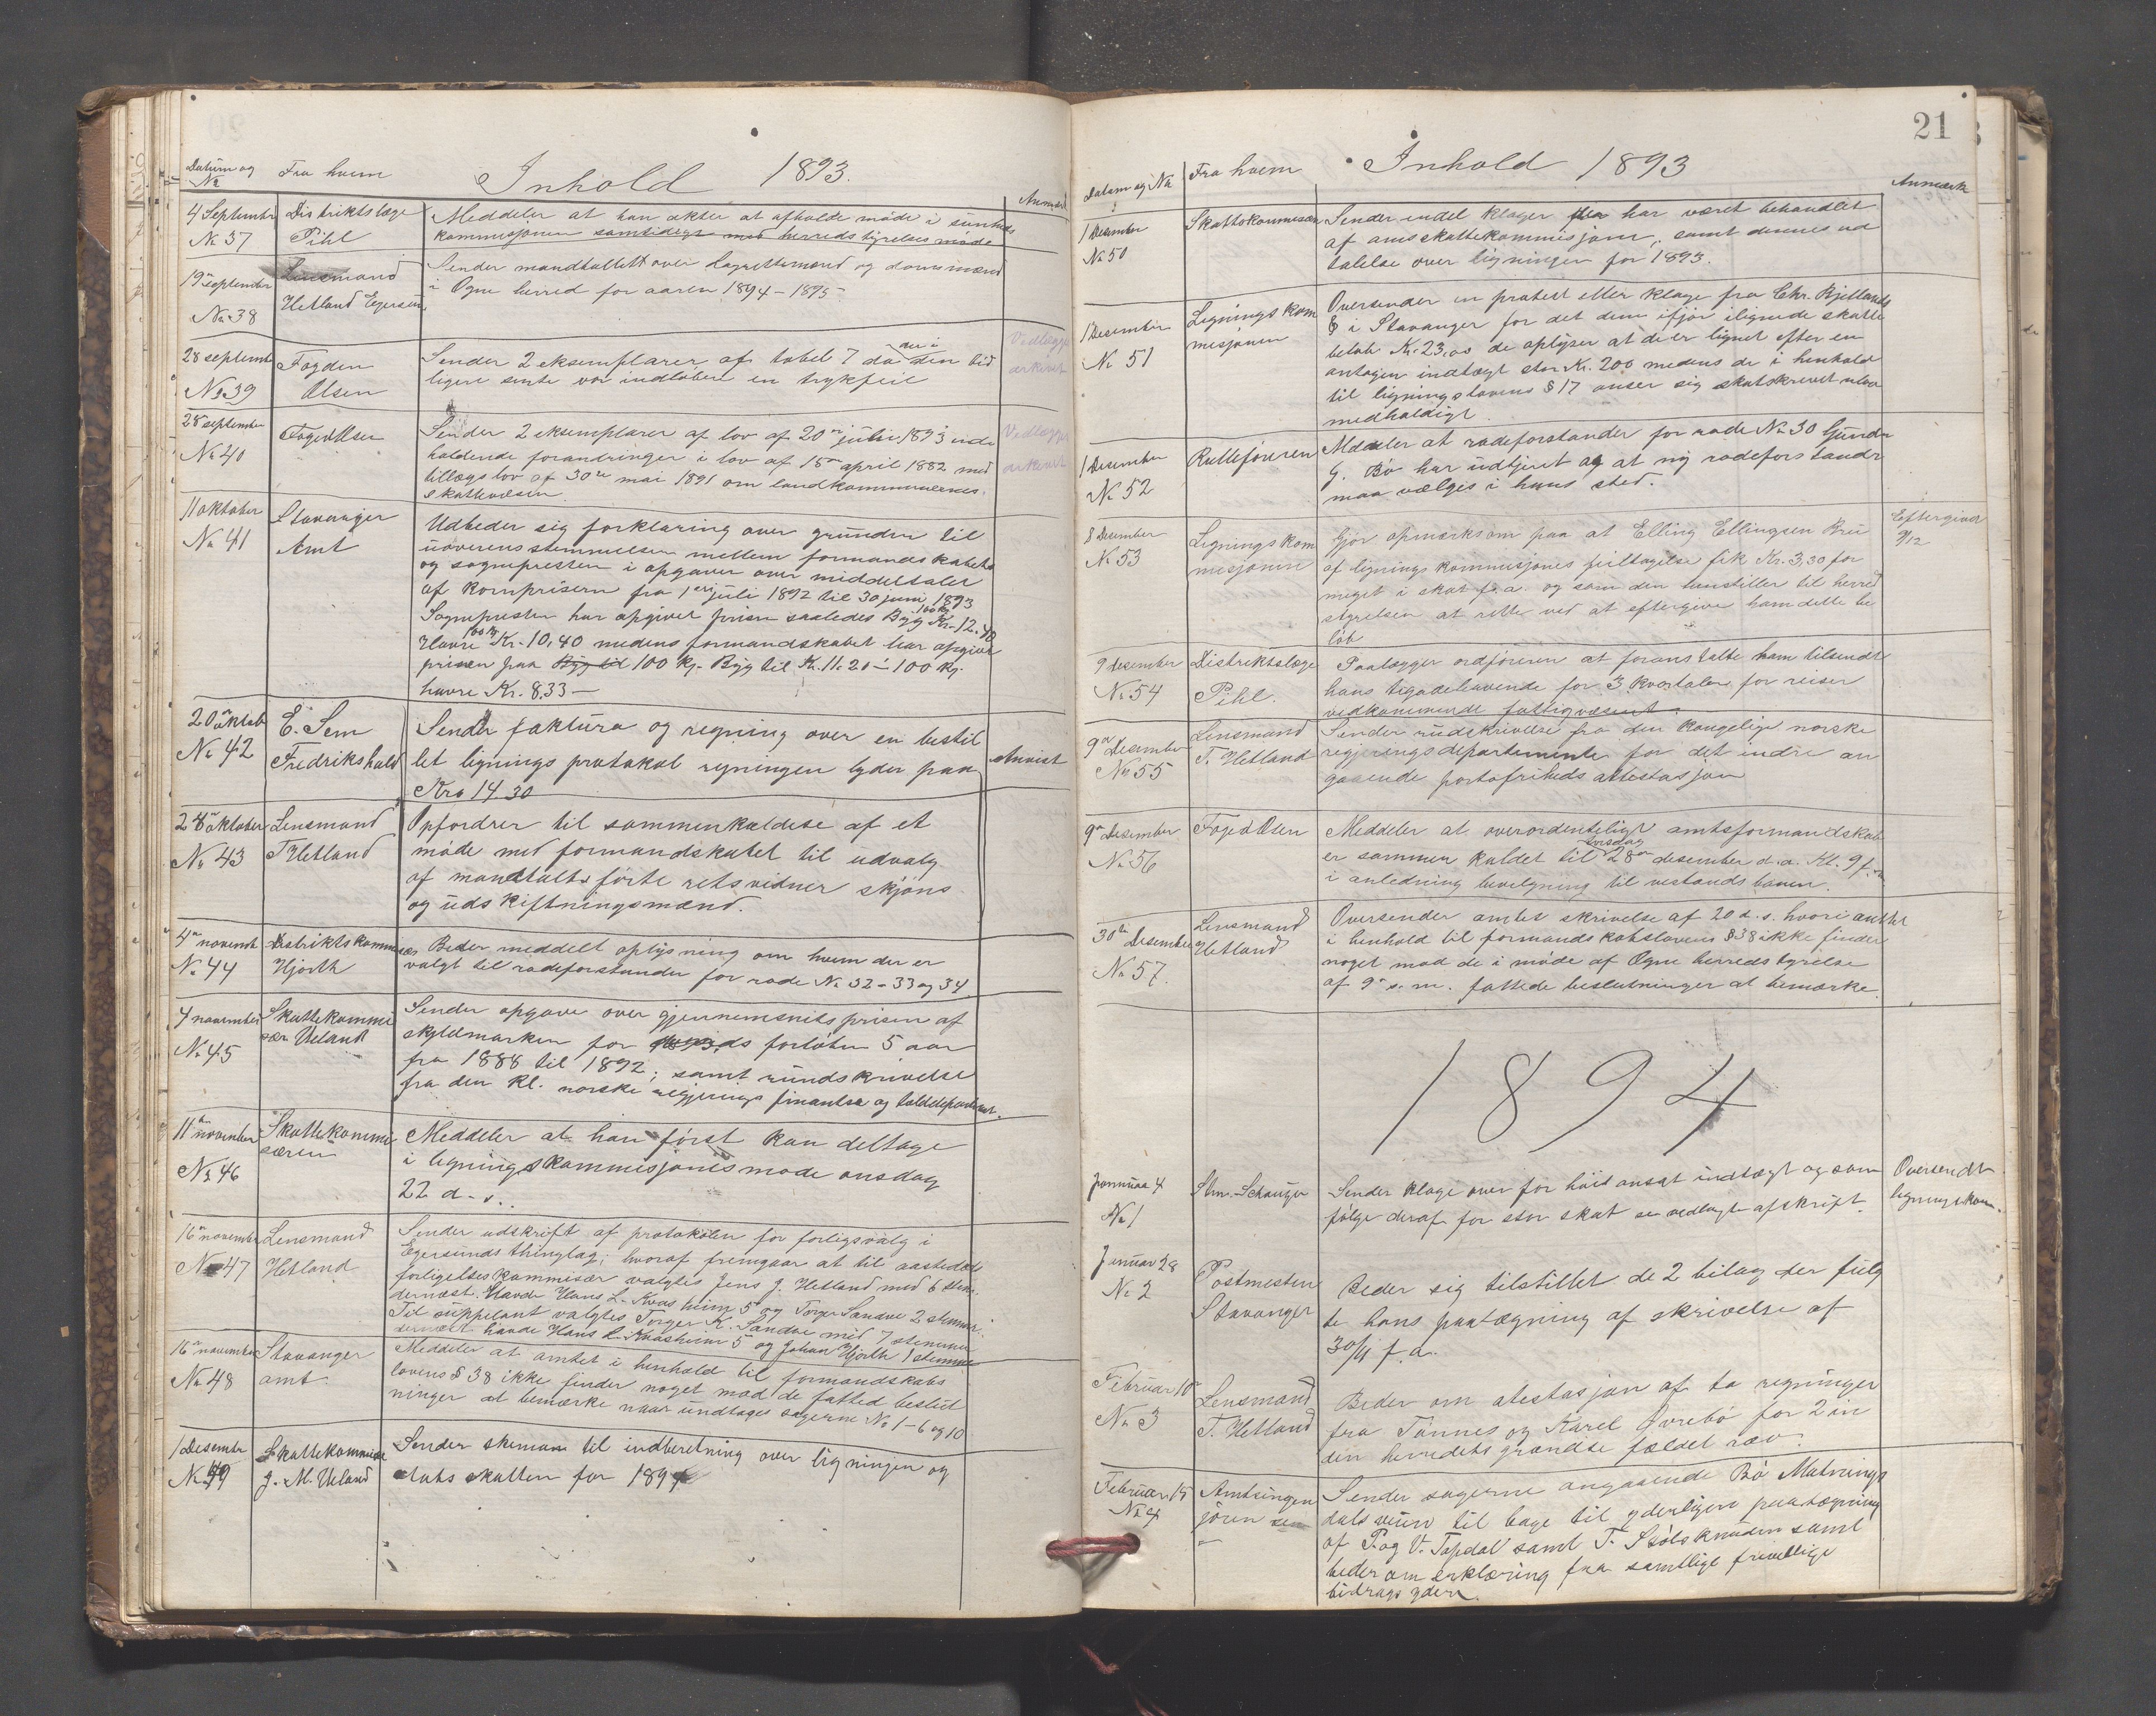 Datum og No Fra hvem Inhold 1893. Anmærk
4 September No 37 Distriktslæge Pihl
Meddeler at han akter at afholde møde i sunheds
kommisjonen samtidigt med herredstyrelsesmøde
19de september No 38 Lensmand Hetland Egersun.
Sender mandtallett over Lagrettemænd og domsmænd
i Ogne herred for aaren 1894-1895-
28 septemb No 39 Fogden Olsen
Sender 2 eksemplarer af tabel 7 da der i den tid
ligere sente var indløben en trykfeil
Vedlagge arkivet
28 september No 40 Foged Olsen
Sender 2 eksemplarer af lov af 20de juli 1893 inde
holdende forandringer i lov af 15de april 1882 med
tillægs lov af 30te mai 1891 om landkommunernes
skattevæsen.
Vedlægges arkivet
11 oktober No 41 Stavanger Amt
Udbeder sig forklaring over grunden til
uoverensstemmelsen mellem formandskabets
og sognepresten i opgaver over middeltaler
af kornprisern fra 1 juli 1892 til 30 juni 1893
Sognepresten har opgivet prisen saaledes Byg 100 kg Kr. 12.40
Havre 100 kg Kr. 10,40 medens formandskabet har opgivet
prisen paa Byg til 100 kg. Byg til Kr. 11.20 - 100 kg.
havre Kr. 8.33 —
20de oktob No 42 E. Sem Fredrikshald
Sender faktura og regning over en bestil
let lignings protokol regningen lyder paa
Kro 14.30
Anvist
28de oktober No 43 Lensmand T Hetland
Opfordrer til sammenkaldese af et
møde med formandskabet til udvalg
af mandtaltsførte retsvidner skjøns
og udskiftningsmænd.
4de novemb No 44 Distriktskommisær Hjorth
Beder meddelt oplysning om hvem der er
valgt til rodeforstander for rode No 32 - 33 og 34
4 november No 45 Skattekommisær Ueland
Sender opgave over gjennemsnits prisen af
skyldmarken for forløbn 5 aar
fra 1888 til 1892; samt rundskrivelse
fra den kl. norske regjerings finantse og tolddepartement.
11de november No 46 Skattekommisæren
Meddeler at han først kan deltage
i ligningskommisjonesmøde onsdag
22 d.s.
16de november No 47 Lensmand Hetland
Sender udskrift af protokolen for forligsvalg i
Egersunds thinglag; hvoraf fremgaar at til aastedets
forligelseskommisær valgtes Jens J. Hetland med 6 stem.
dernæst. Havde Hans L. Kvasheim 5 og Torger Sandve 2 stemmer.
Til suppelant valgtes Torger K. Sandve med 7 stemmer
dernæst havde Hans L. Kvasheim 5 og Johan Hjorth 1 stemme
16de november No 48 Stavanger amt.
Meddeler at amtet i henhold til formandskabs
lovens § 38 ikke finder noget mod de fatted beslut
ninger at bemærke naar undtages sagerne No 1-6 og 10
1 Desembr No 49 Skattekommisær J. M. Ueland
Sender skeman til indberetning over ligningen og
stats skatten for 1894
21
Datum og No Fra hvem Inhold 1893 Anmærk
1 Desember No 50 Skattekommisæren
Sender endel klager der har været behandlet
af amsskattekommisjonn, samt dennes ud
talelse over ligningen for 1893.
1 Desember No 51 Ligningskommisjonen
Oversender en protest eller klage fra Chr. Bjelland
& i Stavanger for det dem ifjor ilignede skatte
beløb Kr. 23,00 de oplyser at de er lignet efter en
antagen indtægt stor Kr. 200 medens de i henhold
til ligningslovens § 17 anser sig skatskrevet uten
medholdigt.
1 Desember No 52 Rulleføreren
Meddeler at rodeforstander for rode No 30 Gunder
G. Bø har udtjent og at ny rodeforstander
maa vælges i hans sted.
8 December No 53 Ligningskommisjonen
Gjør opmærksom paa at Elling Ellingsen Bru
af ligningskommisjones feiltagelse fik Kr. 3,30 for
meget i skat f.a. og som den henstiller til herred
styrelsen at rette ved at eftergive ham dette be
løb
Eftergivet 9/12
9 desember No 54 Distriktslæge Pihl.
Paalægger ordføreren at foranstalte ham tilsendt
hans tegodehavende for 3 kvartaler for reiser
vedkommende fattigvæsent.
9de Desember No 55 Lensmand T. Hetland
Sender rudskrivelse fra den kongelige norske
regjeringsdepartemente for det indre an
gaaende portofriheds attestasjon
9de Desember No 56 Foged Olsen
Meddeler at overordentligt amtsformandskab
er sammenkaldet til torsdag 28de desember d.a. Kl. 9 f.m
i anledning bevilgning til vestlandsbanen.
30te Desember No 57. Lensmand Hetland
Oversender amtes skrivelse af 20 d.s. hvori amtet
i henhold til formandskabslovens § 38 ikke finder
noget mod de i møde af Ogne herredstyrelse
af 9de s.m. fattede beslutninger at bemærke.
1894
Januar 4 No 1
Sender klage over for høit ansat indtægt og som
følge deraf for stor skat se vedlagte afskrift.
Oversendt ligningskom.
Januar 28 No 2 Postmesteren Stavanger
Beder sig tilstillet de 2 bilag der fulg
te hans paategning af skrivelse af
30/11 f.a.
Februar 10de No 3 Lensmand T. Hetland
Beder om atestasjon af to regninger
fra Tønnes og Karel Øvrebø for 2 in
den herredets grændse fældet ræv.
Februar 15 No 4 Amtsingeniøren
Sender sagerne angaaende Bø Matnings
dals veien til bage til yderligere paategning
af P. og V. Topdal samt T. Skølsknuden samt
beder om erklæring fra samtlige frivillige
bidragsydere.